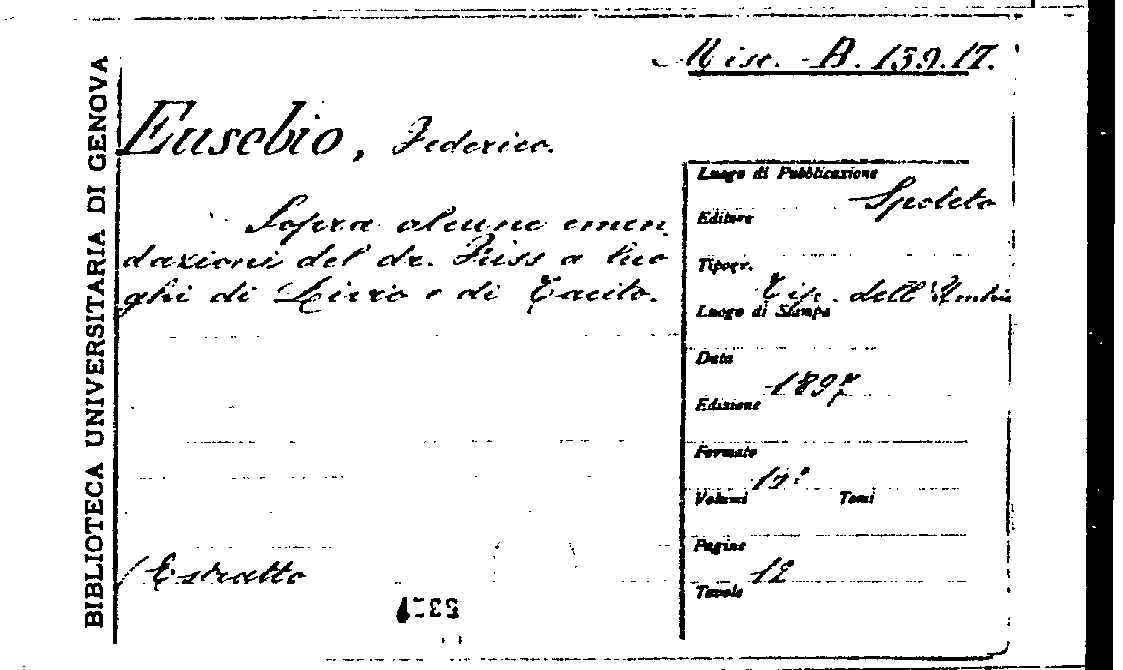 BIBLIOTECA UNIVERSITARIA DI GENOVA
Misc. B. 159.17.
Eusebio, Federico.
Sopra alcune emen
dazioni del dr. Fuss a luo
ghi di Livio e di Tacito.
(Estratto
Luogo di Pubblicazione
Spoleto
Editore
Tipogr.
Tip. dell'Umbria
Luogo di Stampa
Data
1897
Edizione
Formato
Volumi Tomi
Pagine
12
Tavole